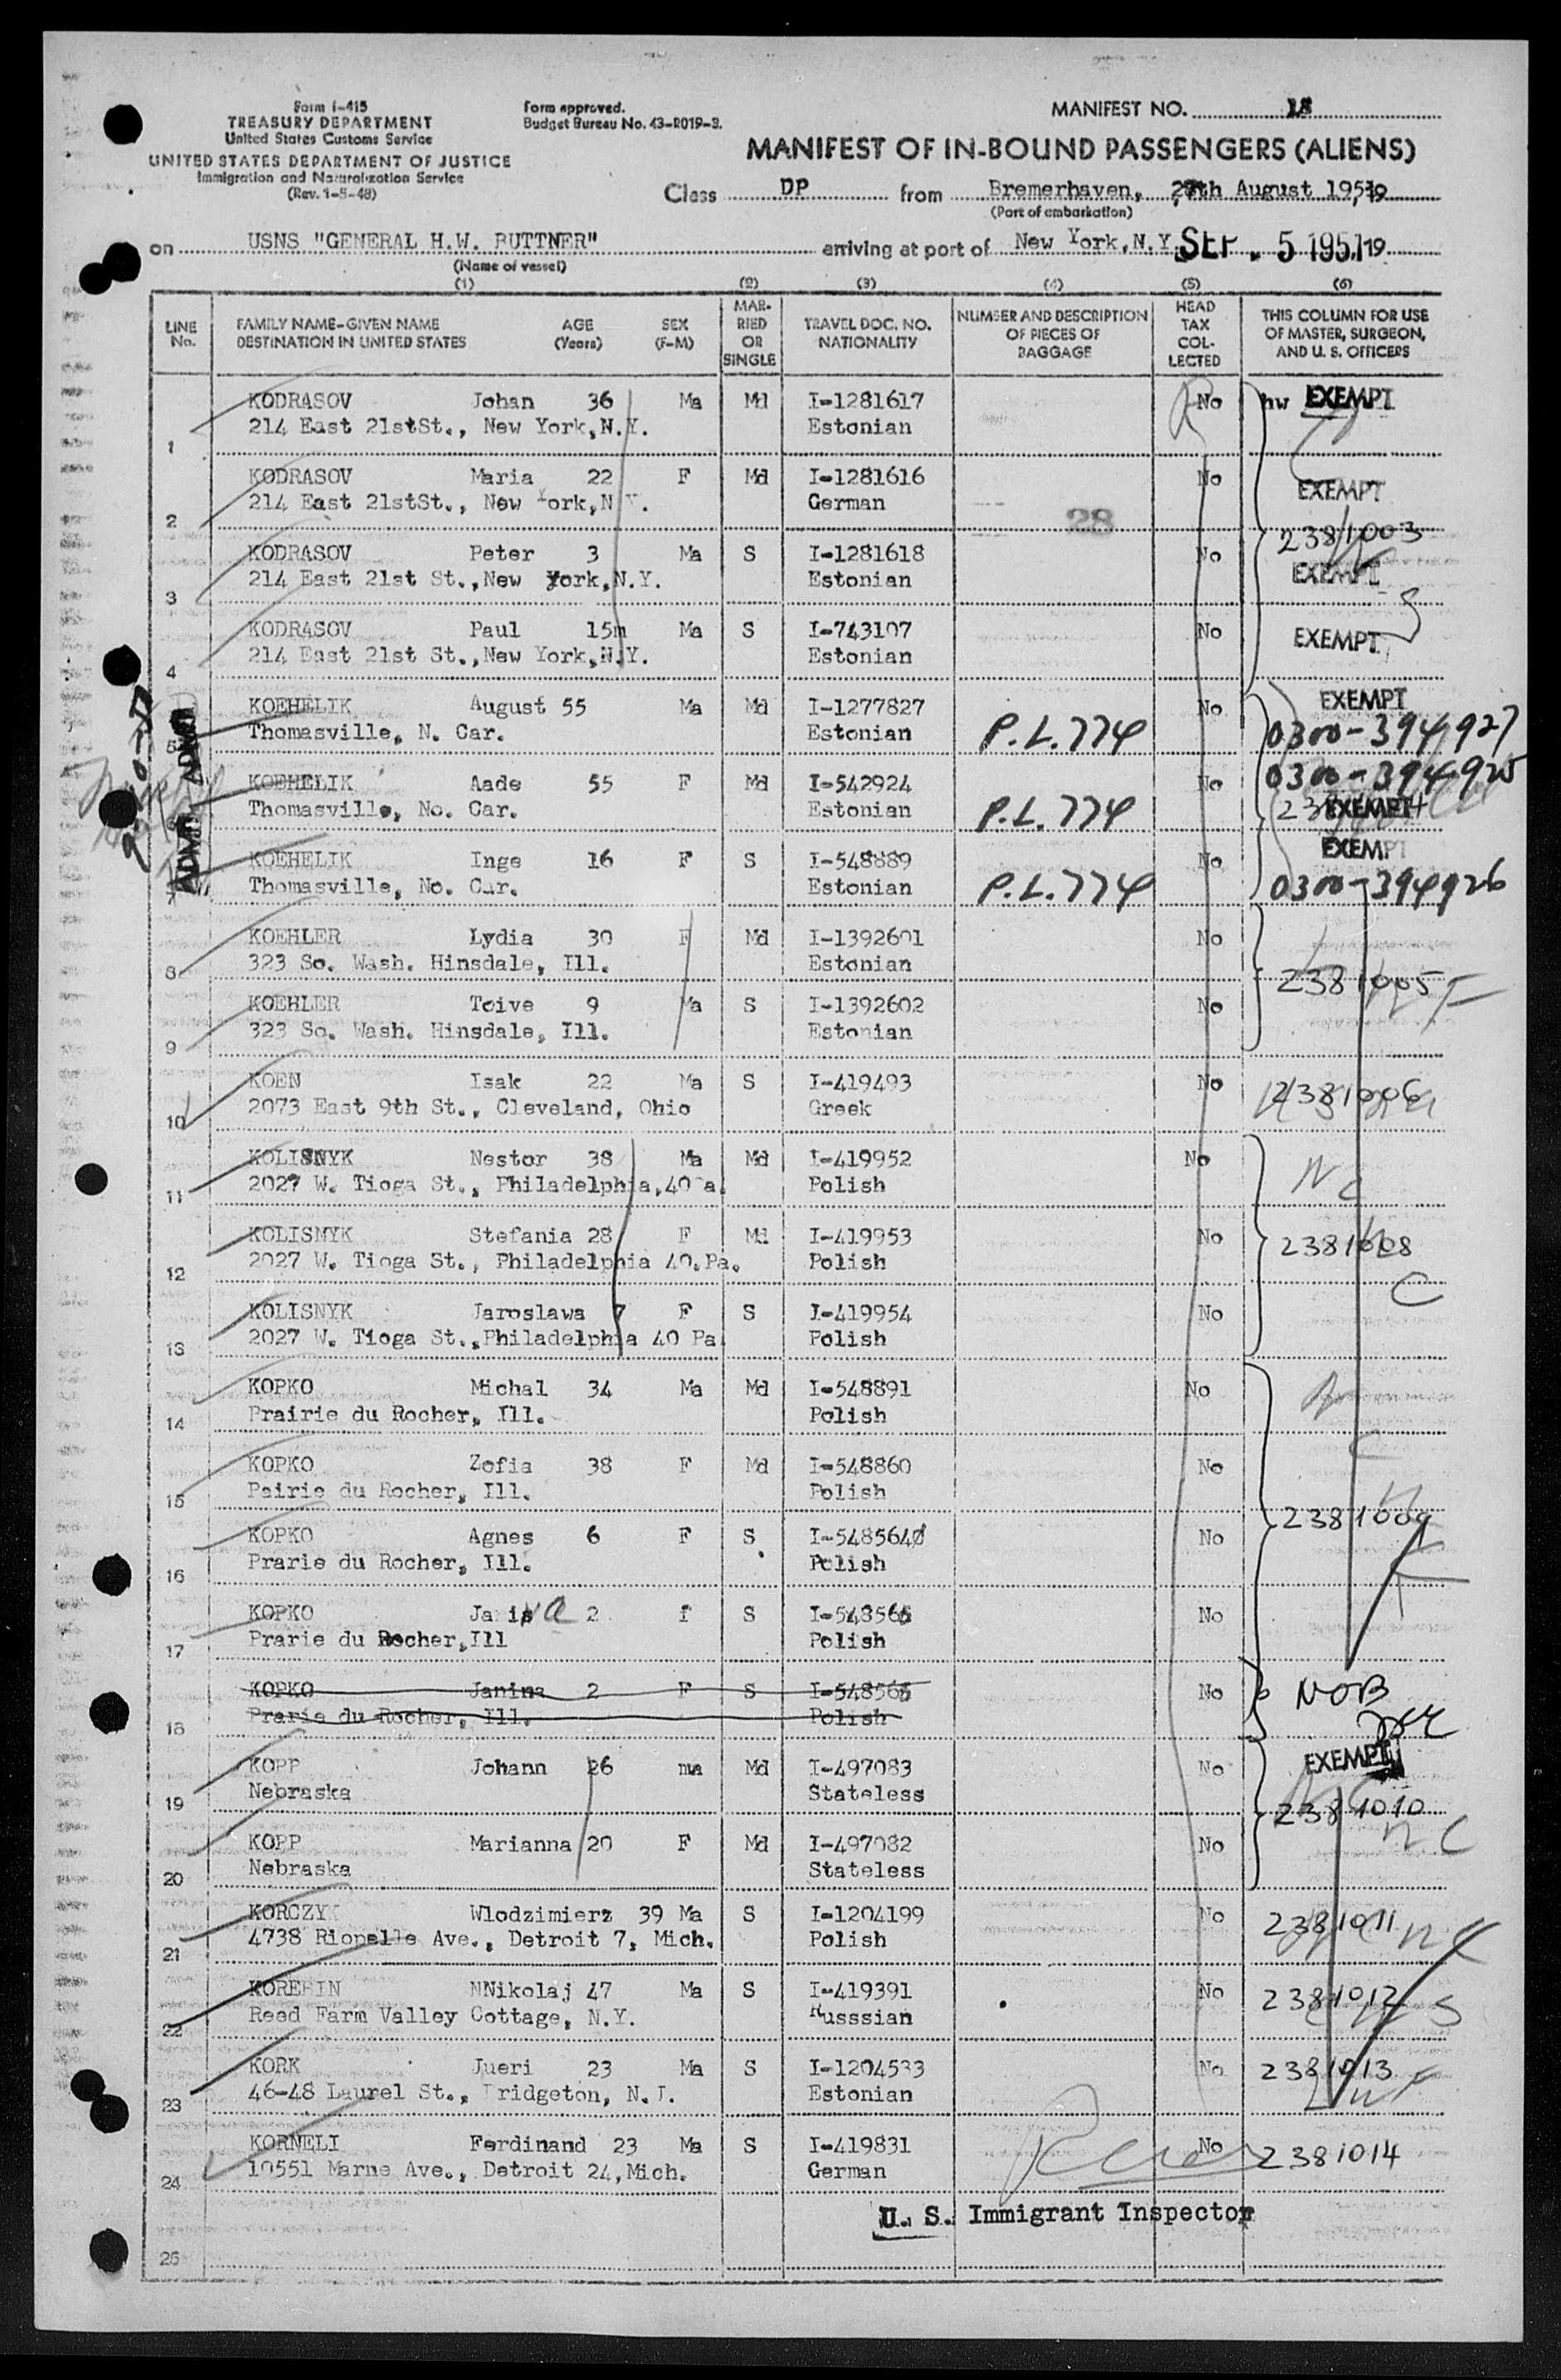 Form I-415
TREASURY DEPARTMENT
United States Customs Service
UNITED STATES DEPARTMENT OF JUSTICE
Immigration and Naturalization Service
(Rev. 1-5-48)
Form approved.
Budget Bureau No. 43-R019-3.
MANIFEST NO. 18
MANIFEST OF IN-BOUND PASSENGERS (ALIENS)
Class DP from Bremerhaven, 27th August 1951
(Port of embarkation)
on USNS "GENERAL H.W. BUTTNER" arriving at port of New York, N.Y. SEP. 5 1951 19
(Name of vessel)
(1) (2) (3) (4) (5) (6)
LINE No. FAMILY NAME-GIVEN NAME DESTINATION IN UNITED STATES AGE (Years) SEX (F-M) MARRIED OR SINGLE TRAVEL DOC. NO. NATIONALITY NUMBER AND DESCRIPTION OF PIECES OF BAGGAGE HEAD TAX COLLECTED THIS COLUMN FOR USE OF MASTER, SURGEON, AND U. S. OFFICERS
1 KODRASOV Johan 36 Ma Md I-1281617 No hw EXEMPT
214 East 21stSt., New York,N.Y. Estonian
2 KODRASOV Maria 22 F Md I-1281616 No EXEMPT
214 East 21stSt., New York,N.Y. German 28
2381003
3 KODRASOV Peter 3 Ma S I-1281618 No EXEMPT
214 East 21st St.,New York,N.Y. Estonian
4 KODRASOV Paul 15m Ma S I-743107 No EXEMPT
214 East 21st St.,New York,N.Y. Estonian
5 KOEHELIK August 55 Ma Md I-1277827 No EXEMPT
Thomasville, N. Car. Estonian P.L.774 0300-394927
ADMT ADMT
6 KOEHELIK Aade 55 F Md I-542924 No 0300-394925
Thomasville, No. Car. Estonian P.L.774 EXEMPT
7 KOEHELIK Inge 16 F S I-548889 No EXEMPT
Thomasville, No. Car. Estonian P.L.774 0300-394926
8 KOEHLER Lydia 30 F Md I-1392601 No
323 So. Wash. Hinsdale, Ill. Estonian 2381005
9 KOEHLER Toive 9 Ma S I-1392602 No
323 So. Wash. Hinsdale, Ill. Estonian
10 KOEN Isak 22 Ma S I-419493 No 2381006
2073 East 9th St., Cleveland, Ohio Greek
11 KOLISNYK Nestor 38 Ma Md I-419952 No
2027 W. Tioga St., Philadelphia,40 Pa. Polish
12 KOLISNYK Stefania 28 F Md I-419953 No 2381008
2027 W. Tioga St., Philadelphia 40.Pa. Polish
13 KOLISNYK Jaroslawa 7 F S I-419954 No
2027 W. Tioga St.,Philadelphia 40 Pa. Polish
14 KOPKO Michal 34 Ma Md I-548891 No
Prairie du Rocher, Ill. Polish
15 KOPKO Zofia 38 F Md I-548860 No
Pairie du Rocher, Ill. Polish 2381009
16 KOPKO Agnes 6 F S I-548564 No
Prarie du Rocher, Ill. Polish
17 KOPKO Janina 2 f S I-548565 No
Prarie du Rocher,Ill Polish
18 KOPKO Janina 2 F S I-548565 No NOB
Prarie du Rocher, Ill. Polish
19 KOPP Johann 26 ma Md I-497083 No EXEMPT
Nebraska Stateless 2381010
20 KOPP Marianna 20 F Md I-497082 No
Nebraska Stateless
21 KORCZYK Wlodzimierz 39 Ma S I-1204199 No 2381011
4738 Riopelle Ave., Detroit 7, Mich. Polish
22 KOREHIN NNikolaj 47 Ma S I-419391 No 2381012
Reed Farm Valley Cottage, N.Y. Russsian
23 KORK Jueri 23 Ma S I-1204533 No 2381013
46-48 Laurel St., Bridgeton, N.J. Estonian
24 KORNELI Ferdinand 23 Ma S I-419831 No 2381014
10551 Marne Ave., Detroit 24,Mich. German
U. S. Immigrant Inspector
25